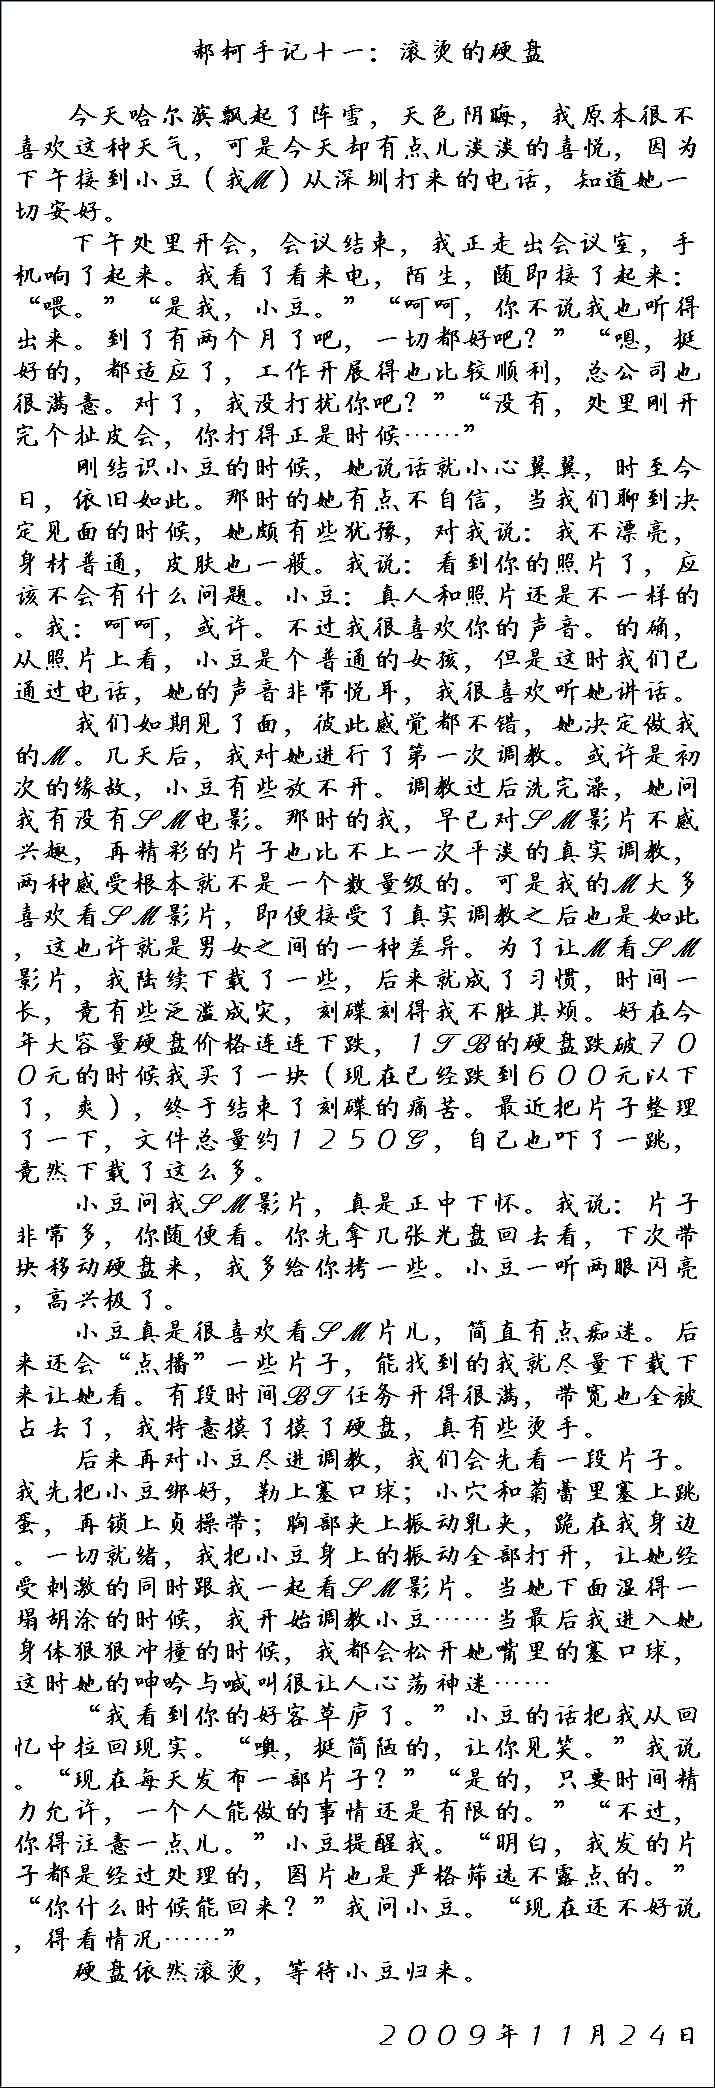 郝柯手记十一：滚烫的硬盘
今天哈尔滨飘起了阵雪，天色阴晦，我原本很不
喜欢这种天气，可是今天却有点儿淡淡的喜悦，因为
下午接到小豆（我M）从深圳打来的电话，知道她一
切安好。
下午处里开会，会议结束，我正走出会议室，手
机响了起来。我看了看来电，陌生，随即接了起来：
“喂。”“是我，小豆。”“呵呵，你不说我也听得
出来。到了有两个月了吧，一切都好吧？”“嗯，挺
好的，都适应了，工作开展得也比较顺利，总公司也
很满意。对了，我没打扰你吧？”“没有，处里刚开
完个扯皮会，你打得正是时候……”
刚结识小豆的时候，她说话就小心翼翼，时至今
日，依旧如此。那时的她有点不自信，当我们聊到决
定见面的时候，她颇有些犹豫，对我说：我不漂亮，
身材普通，皮肤也一般。我说：看到你的照片了，应
该不会有什么问题。小豆：真人和照片还是不一样的
。我：呵呵，或许。不过我很喜欢你的声音。的确，
从照片上看，小豆是个普通的女孩，但是这时我们已
通过电话，她的声音非常悦耳，我很喜欢听她讲话。
我们如期见了面，彼此感觉都不错，她决定做我
的M。几天后，我对她进行了第一次调教。或许是初
次的缘故，小豆有些放不开。调教过后洗完澡，她问
我有没有SM电影。那时的我，早已对SM影片不感
兴趣，再精彩的片子也比不上一次平淡的真实调教，
两种感受根本就不是一个数量级的。可是我的M大多
喜欢看SM影片，即便接受了真实调教之后也是如此
，这也许就是男女之间的一种差异。为了让M看SM
影片，我陆续下载了一些，后来就成了习惯，时间一
长，竟有些泛滥成灾，刻碟刻得我不胜其烦。好在今
年大容量硬盘价格连连下跌，1TB的硬盘跌破70
0元的时候我买了一块（现在已经跌到600元以下
了，爽），终于结束了刻碟的痛苦。最近把片子整理
了一下，文件总量约1250G，自己也吓了一跳，
竟然下载了这么多。
小豆问我SM影片，真是正中下怀。我说：片子
非常多，你随便看。你先拿几张光盘回去看，下次带
块移动硬盘来，我多给你拷一些。小豆一听两眼闪亮
，高兴极了。
小豆真是很喜欢看SM片儿，简直有点痴迷。后
来还会“点播”一些片子，能找到的我就尽量下载下
来让她看。有段时间BT任务开得很满，带宽也全被
占去了，我特意摸了摸了硬盘，真有些烫手。
后来再对小豆尽进调教，我们会先看一段片子。
我先把小豆绑好，勒上塞口球；小穴和菊蕾里塞上跳
蛋，再锁上贞操带；胸部夹上振动乳夹，跪在我身边
。一切就绪，我把小豆身上的振动全部打开，让她经
受刺激的同时跟我一起看SM影片。当她下面湿得一
塌胡涂的时候，我开始调教小豆……当最后我进入她
身体狠狠冲撞的时候，我都会松开她嘴里的塞口球，
这时她的呻吟与喊叫很让人心荡神迷……
“我看到你的好客草庐了。”小豆的话把我从回
忆中拉回现实。“噢，挺简陋的，让你见笑。”我说
。“现在每天发布一部片子？”“是的，只要时间精
力允许，一个人能做的事情还是有限的。”“不过，
你得注意一点儿。”小豆提醒我。“明白，我发的片
子都是经过处理的，图片也是严格筛选不露点的。”
“你什么时候能回来？”我问小豆。“现在还不好说
，得看情况……”
硬盘依然滚烫，等待小豆归来。
2009年11月24日